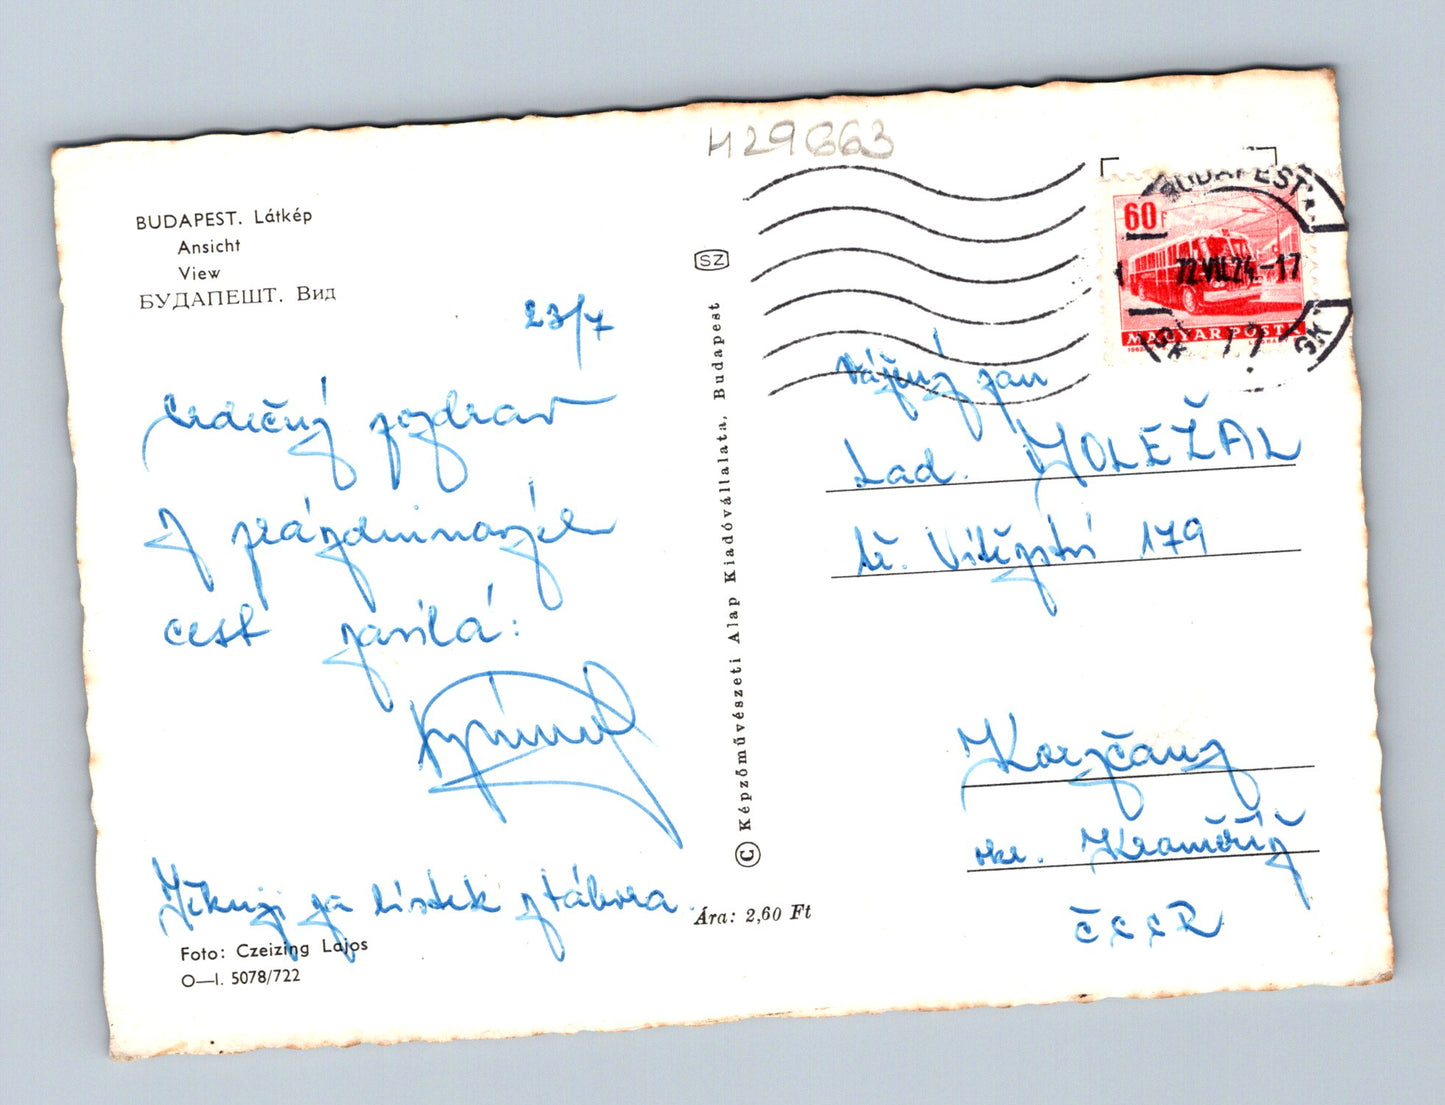 H29663
BUDAPEST. Látkép
Ansicht
View
БУДАПЕШТ. Вид
23/7
Srdečný pozdrav
z prázdninových
cest zasílá:
Děkuji za lístek z tábora.
Foto: Czeizing Lajos
O—I. 5078/722
SZ
© Képzőművészeti Alap Kiadóvállalata, Budapest
Ára: 2,60 Ft
60f
MAGYAR POSTA
BUDAPEST
72.VII.24.-17
Vážený pan
Lad. DOLEŽAL
tř. Vítězství 179
Koryčany
okr. Kroměříž
ČSSR